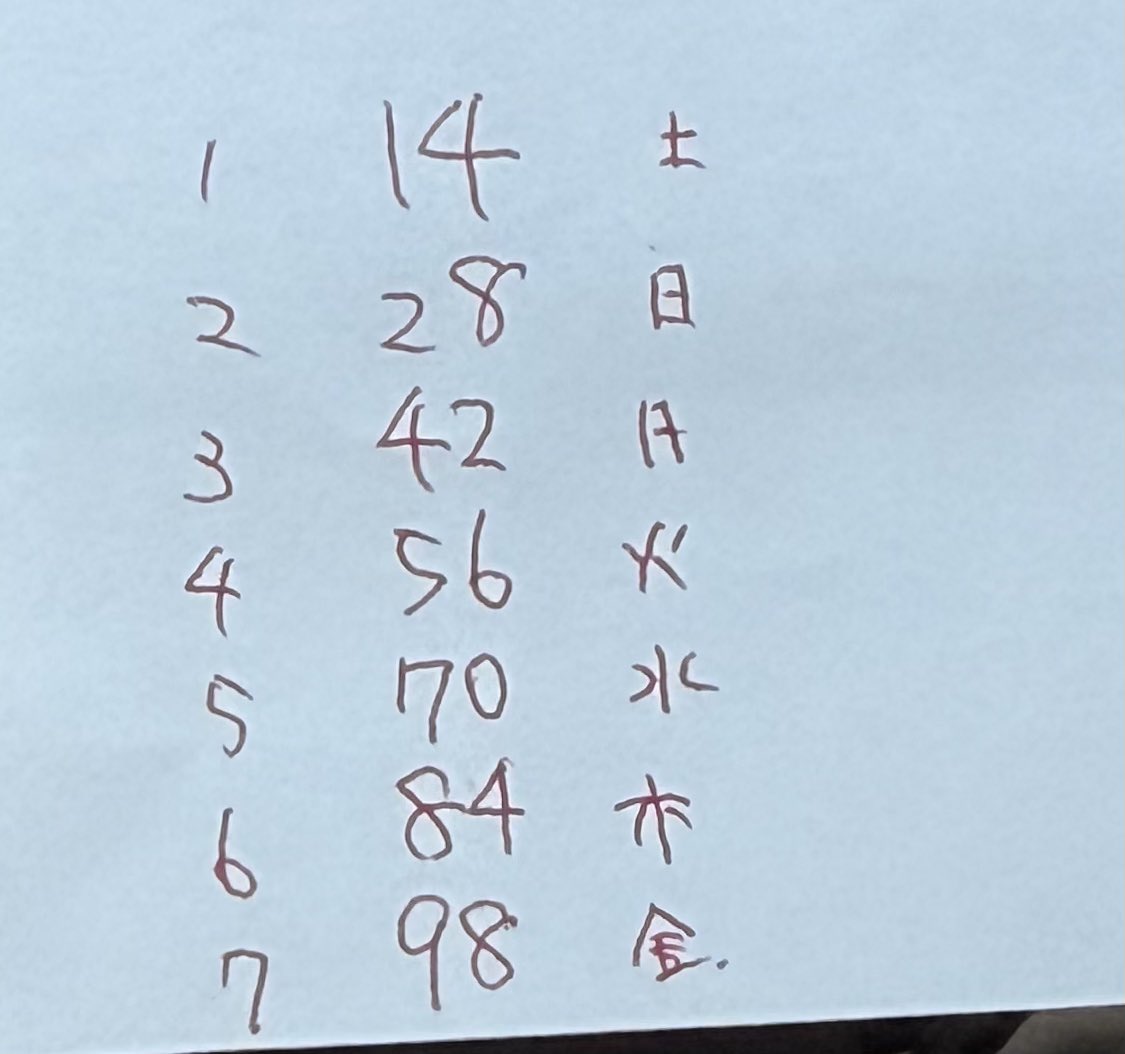 1 14 土
2 28 日
3 42 月
4 56 火
5 70 水
6 84 木
7 98 金.